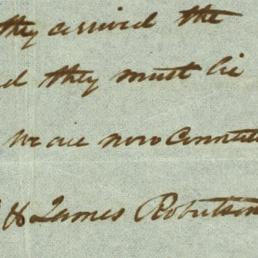 they arrived the
d they must lie
We are now Connec
& James Robertson